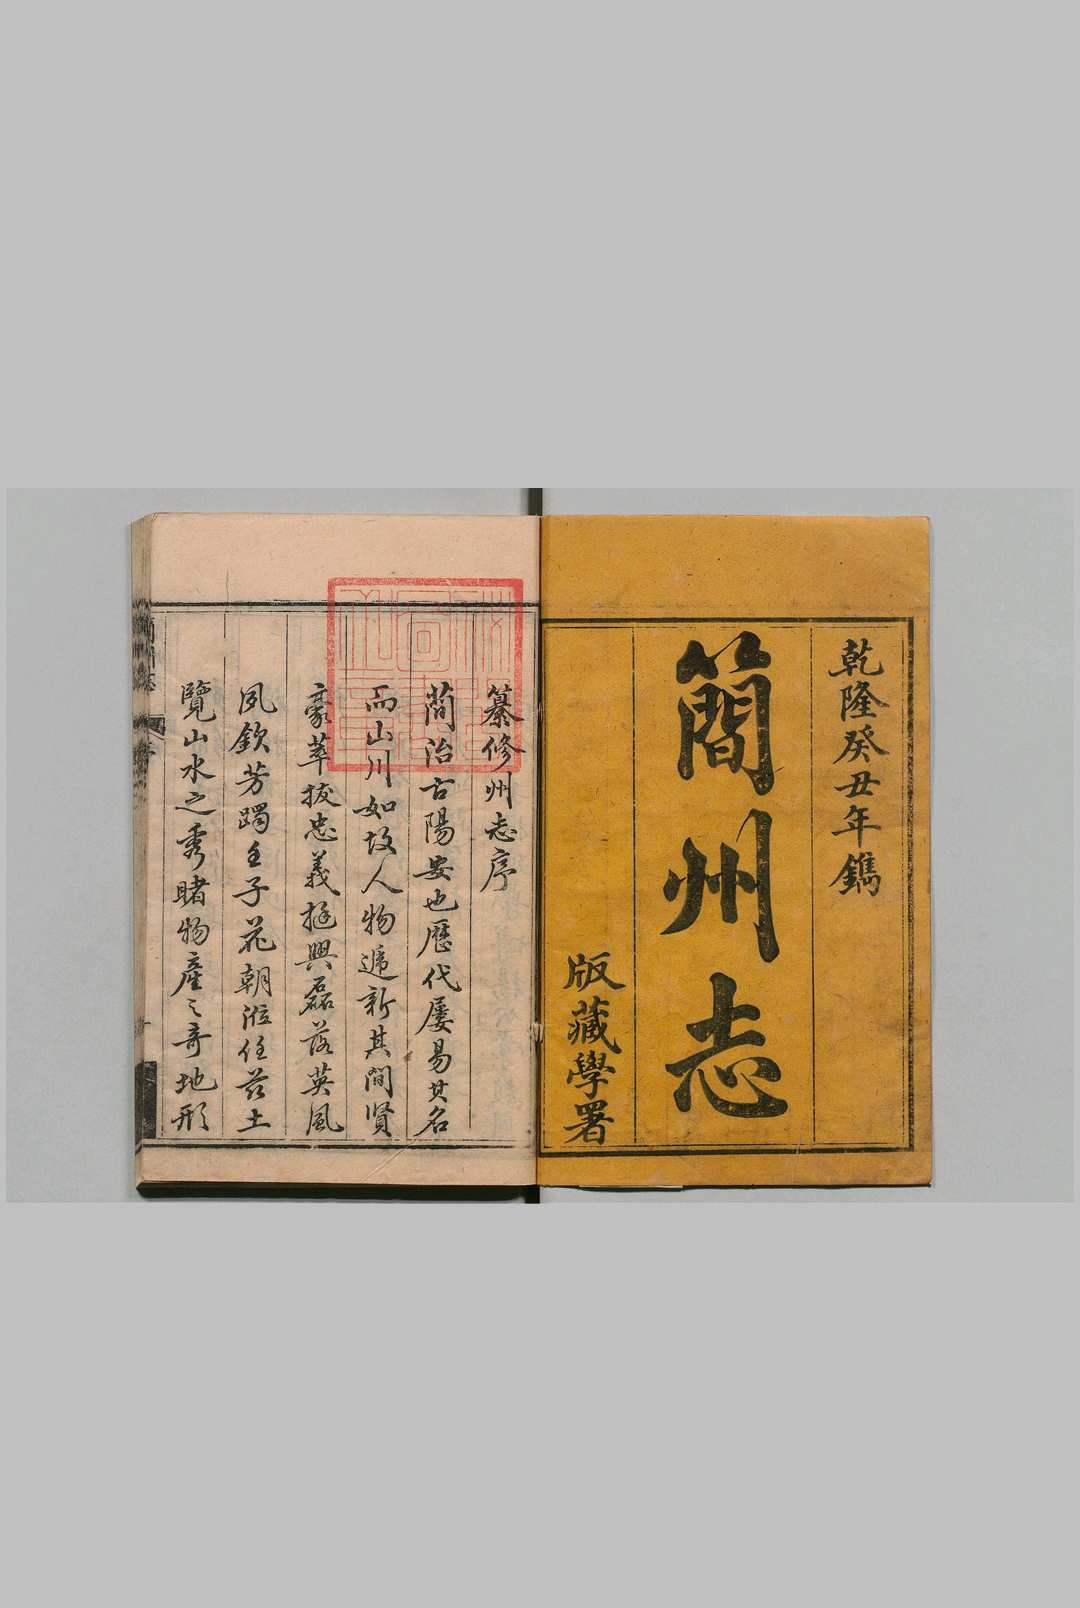 乾隆癸丑年鐫
簡州志
版藏學署
纂修州志序
簡治古陽安也歷代屢易其名
而山川如故人物遞新其間賢
豪萃拔忠義挺興磊落英風
夙欽芳躅壬子花朝涖任茲土
覽山水之秀睹物產之奇地形